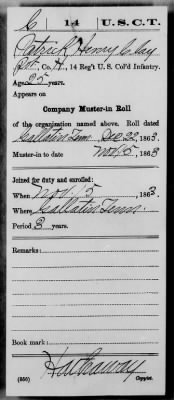 C 14 U.S.C.T.
Patrick Henry Clay
Pvt., Co. H, 14 Reg't U. S. Col'd Infantry.
Age 25 years.
Appears on
Company Muster-in Roll
of the organization named above. Roll dated
Gallatin Tenn Dec 22, 1863.
Muster-in to date Nov. 15, 1863
Joined for duty and enrolled:
When Nov. 15, 1863.
Where Gallatin Tenn.
Period 3 years.
Remarks:
Book mark:
Hathaway
(356) Copyist.